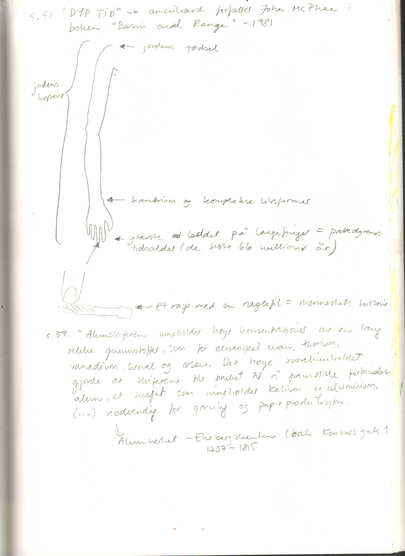 s. 51 "DYP TID" -> amerikansk forfatter John McPhee i
boken "Basin and Range" - 1981
jordens fødsel
jordens historie
kambrium og komplekse livsformer
ytterste leddet på langefinger = pattedyrenes
tidsalder (de siste 66 millioner år)
Et rasp med en neglefil = menneskets historie
s. 59. "Alunskiferen inneholder høye konsentrasjoner av en lang
rekke grunnstoffer, som for eksempel uran, thorium,
vanadium, svovel og arsen. Det høye svovelinnholdet
gjorde at skiferen ble brukt til å framstille forbindelsen
alun, et sulfat som inneholder kalium og aluminium.
(...) nødvendig for garving og papirproduksjon.
Alunverket - Ekebergskrenten (bak Konows gate)
1737 - 1815